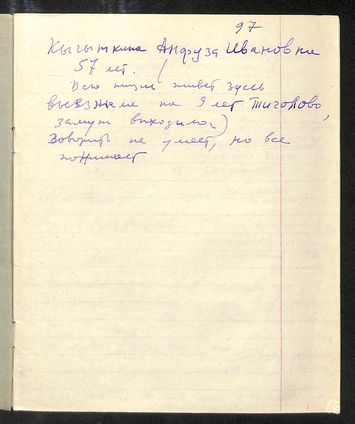 97
Кыгыткина Анфуза Ивановна
57 лет. (
Всю жизнь живет здесь
выезжала на 9 лет Тиголово,
замуж выходила)
Говорить не умеет, но все
понимает